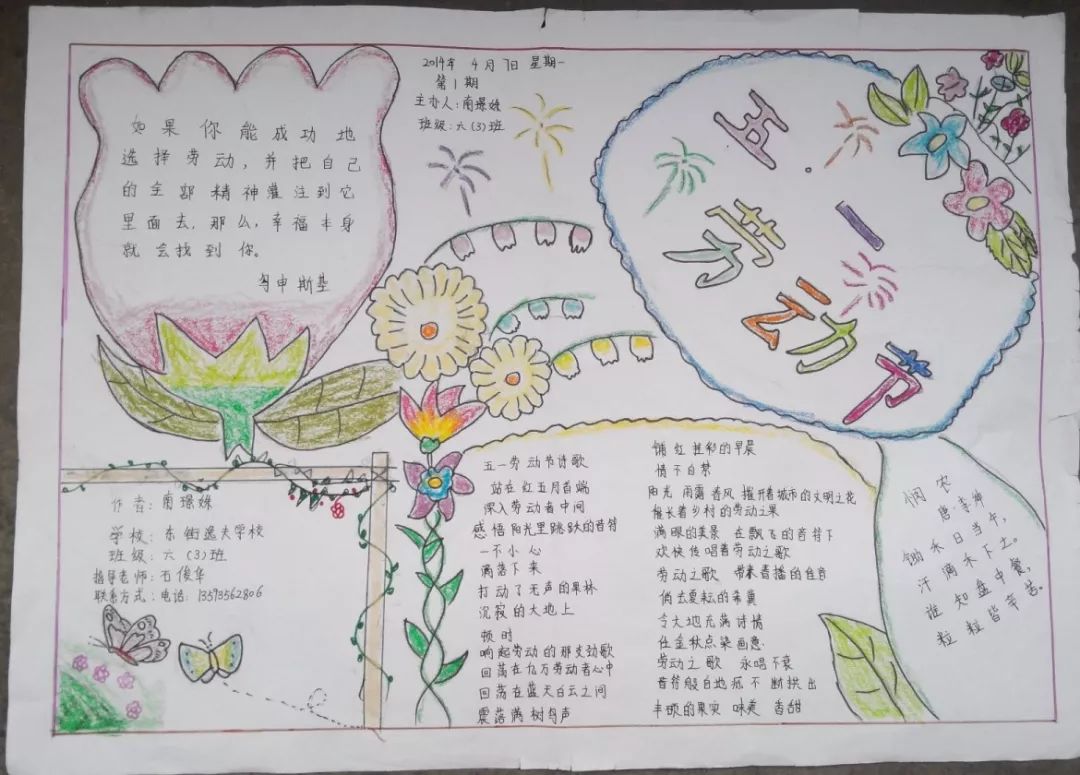 2014年 4月7日 星期一
第1期
主办人:南璟姝
班级:六(3)班
如果你能成功地
选择劳动,并把自己
的全部精神灌注到它
里面去,那么,幸福本身
就会找到你。
申斯基
五·一
劳动节
作者:南璟姝
学校:东街逸夫学校
班级:六(3)班
指导老师:石俊华
联系方式:电话:13593562806
五一劳动节诗歌
站在红五月首端
深入劳动者中间
感悟阳光里跳跃的音符
一不小心
滴落下来
打动了无声的果林
沉寂的大地上
顿时
响起劳动的那支劲歌
回荡在亿万劳动者心中
回荡在蓝天白云之间
震落满树鸟声
铺红挂彩的早晨
情不自禁
阳光 雨露 春风 握开着城市的文明之花
擅长着乡村的劳动之果
满眼的美景 在飘飞的音符下
欢快传唱着劳动之歌
劳动之歌 带来春播的佳音
倘去夏耘的希冀
令大地充满诗情
任金秋点染画意
劳动之歌 永唱不衰
音符般自地 不断拱出
丰硕的果实 味美 香甜
悯农
唐·李绅
锄禾日当午,
汗滴禾下土。
谁知盘中餐,
粒粒皆辛苦。